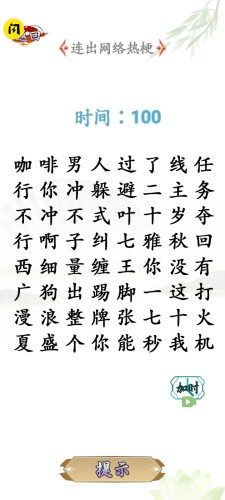 问
回
连出网络热梗
时间：100
咖啡男人过了线任
行你冲躲避二主务
不冲不式叶十岁夺
行啊子纠七雅秋回
西细量缠王你没有
广狗出踢脚一这打
漫浪整牌张七十火
夏盛个你能秒我机
加时
提示